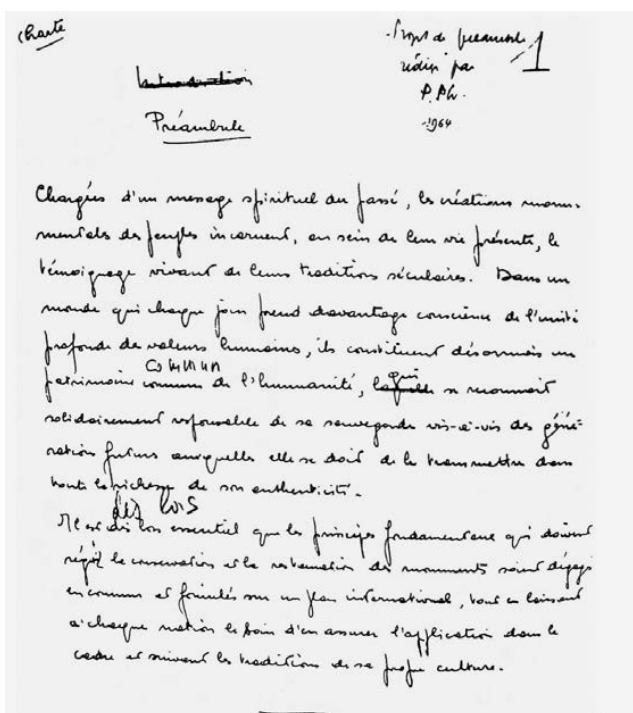 Charte
- Projet de préambule
rédigé par
P. Ph.
- 1964
1
Introduction
Préambule
Chargées d'un message spirituel du passé, les créations monu-
mentales des peuples incarnent, au sein de leur vie présente, le
témoignage vivant de leurs traditions séculaires. Dans un
monde qui chaque jour prend davantage conscience de l'unité
profonde des valeurs humaines, ils constituent désormais un
commun
patrimoine commun de l'humanité, laquelle qui se reconnait
solidairement responsable de sa sauvegarde vis-à-vis des géné-
rations futures auxquelles elle se doit de le transmettre dans
toute la richesse de son authenticité.
dès lors
Il est dès lors essentiel que les principes fondamentaux qui doivent
régir la conservation et la restauration des monuments soient dégagés
en commun et formulés sur un plan international, tout en laissant
à chaque nation le soin d'en assurer l'application dans le
cadre et suivant les traditions de sa propre culture.